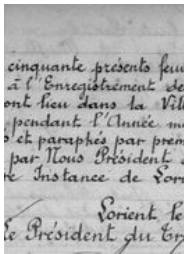 cinquante présents feu
à l'Enregistrement de
ont lieu dans la Vil
pendant l'Année m
et paraphés par prem
par Nous Président
Instance de Lori
Lorient le
Le Président du Tr